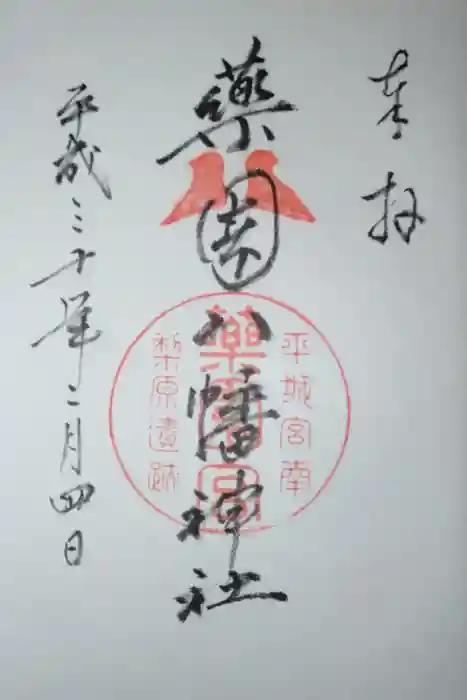 奉拝
薬園八幡神社
平城宮南
薬園宮
梨原遺跡
平成三十年二月四日